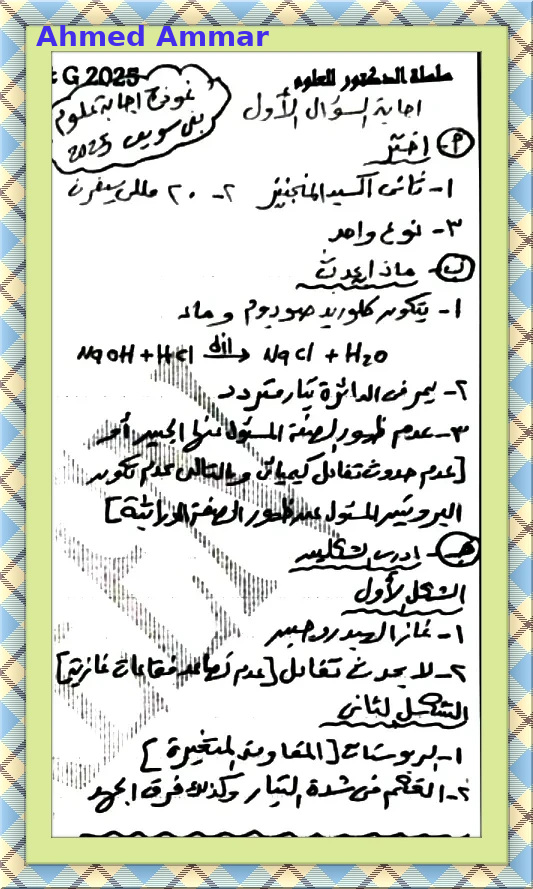 Ahmed Ammar
G 2025
سلسلة الدكتور للعلوم
نموذج اجابة علوم
بنى سويف 2025
اجابة السؤال الأول
(م) اختر
١- ثانى اكسيد المنجنيز ٢- ٢٠ مللى سيفرت
٣- نوع واحد
(ب) ماذا يحدث
١- يتكون كلوريد صوديوم وماء
NaOH + HCl dil → NaCl + H2O
٢- يمر فى الدائرة تيار متردد
٣- عدم ظهور الصفة المسئول عنها الجين
[عدم حدوث تفاعل كيميائى وبالتالى عدم تكوين
البروتين المسئول عن ظهور الصفة الوراثية]
(ج) ادرس الشكلين
الشكل الأول
١- غاز الهيدروجين
٢- لا يحدث تفاعل [عدم تصاعد فقاعات غازية]
الشكل الثانى
١- الريوستات [المقاومة المتغيرة]
٢- التحكم فى شدة التيار وكذلك فرق الجهد